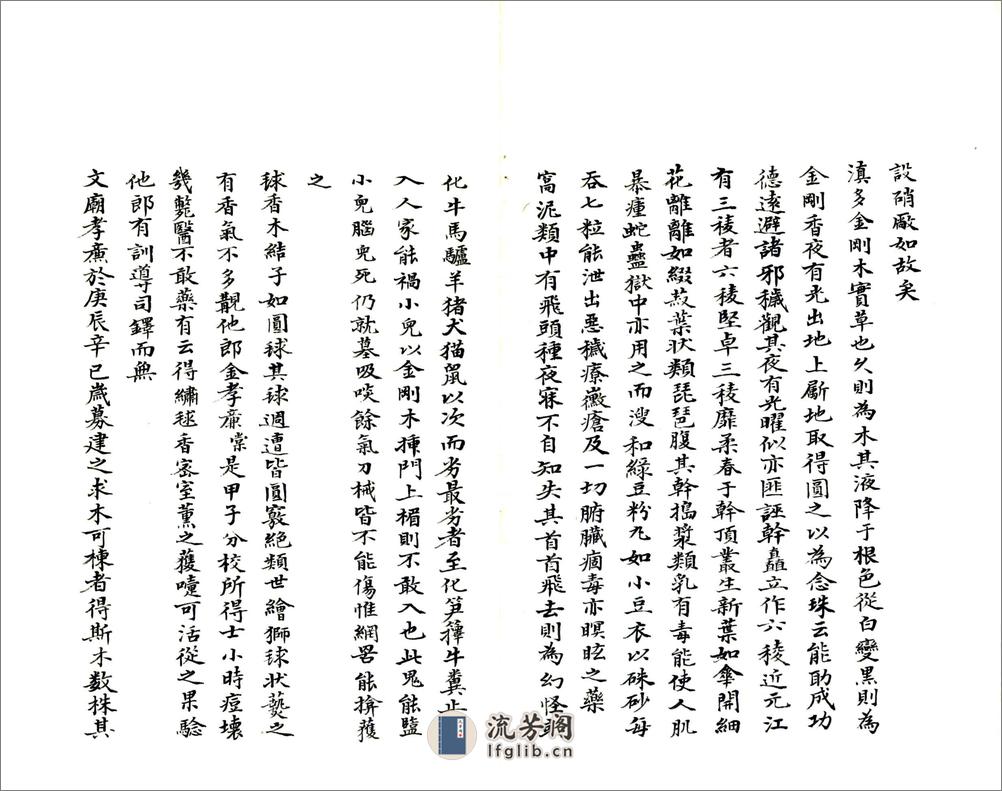 設硝厰如故矣
滇多金剛木實草也久則為木其液降于根色從白變黑則為
金剛香夜有光出地上斸地取得圓之以為念珠云能助成功
德遠避諸邪穢觀其夜有光曜似亦匪誣幹矗立作六稜近元江
有三稜者六稜堅卓三稜靡柔春于幹頂叢生新葉如傘開細
花離離如綴蕊葉狀類琵琶腹其幹搗漿類乳有毒能使人肌
暴瘇蛇蠱獄中亦用之而溲和綠豆粉丸如小豆衣以硃砂每
吞七粒能泄出惡穢療黴瘡及一切腑臟痼毒亦瞑眩之藥
窩泥類中有飛頭種夜寐不自知失其首首飛去則為幻怪頭
化牛馬驢羊猪犬猫鼠以次而劣最劣者至化筲籜牛糞止
入人家能禍小兒以金剛木揷門上楣則不敢入也此鬼能盬
小兒腦兒死仍就墓吸啖餘氣刀械皆不能傷惟網罟能擠獲
之
毬香木結子如圓毬其毬週遭皆圓竅絕類世繪獅毬狀爇之
有香氣不多覯他郎金孝廉棠是甲子分校所得士小時痘壞
幾斃醫不敢藥有云得繡毬香密室薰之獲嚏可活從之果驗
他郎有訓導司鐸而無
文廟孝廉於庚辰辛巳歲募建之求木可棟者得斯木数株其
流芳阁
lfglib.cn